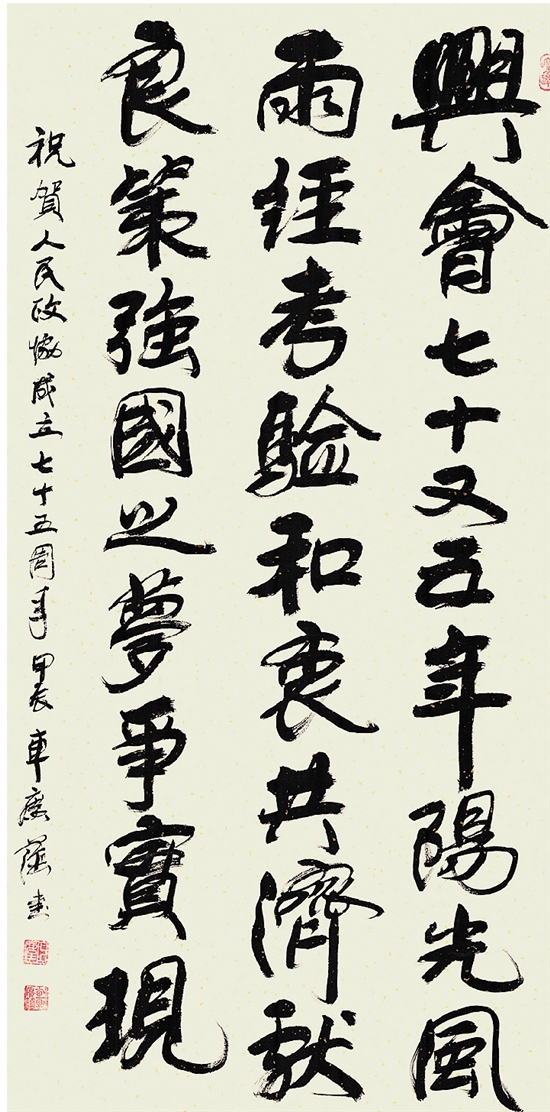 興會七十又五年陽光風
雨經考驗和衷共濟獻
良策強國之夢爭實現
祝賀人民政協成立七十五周年甲辰車廣蔭書